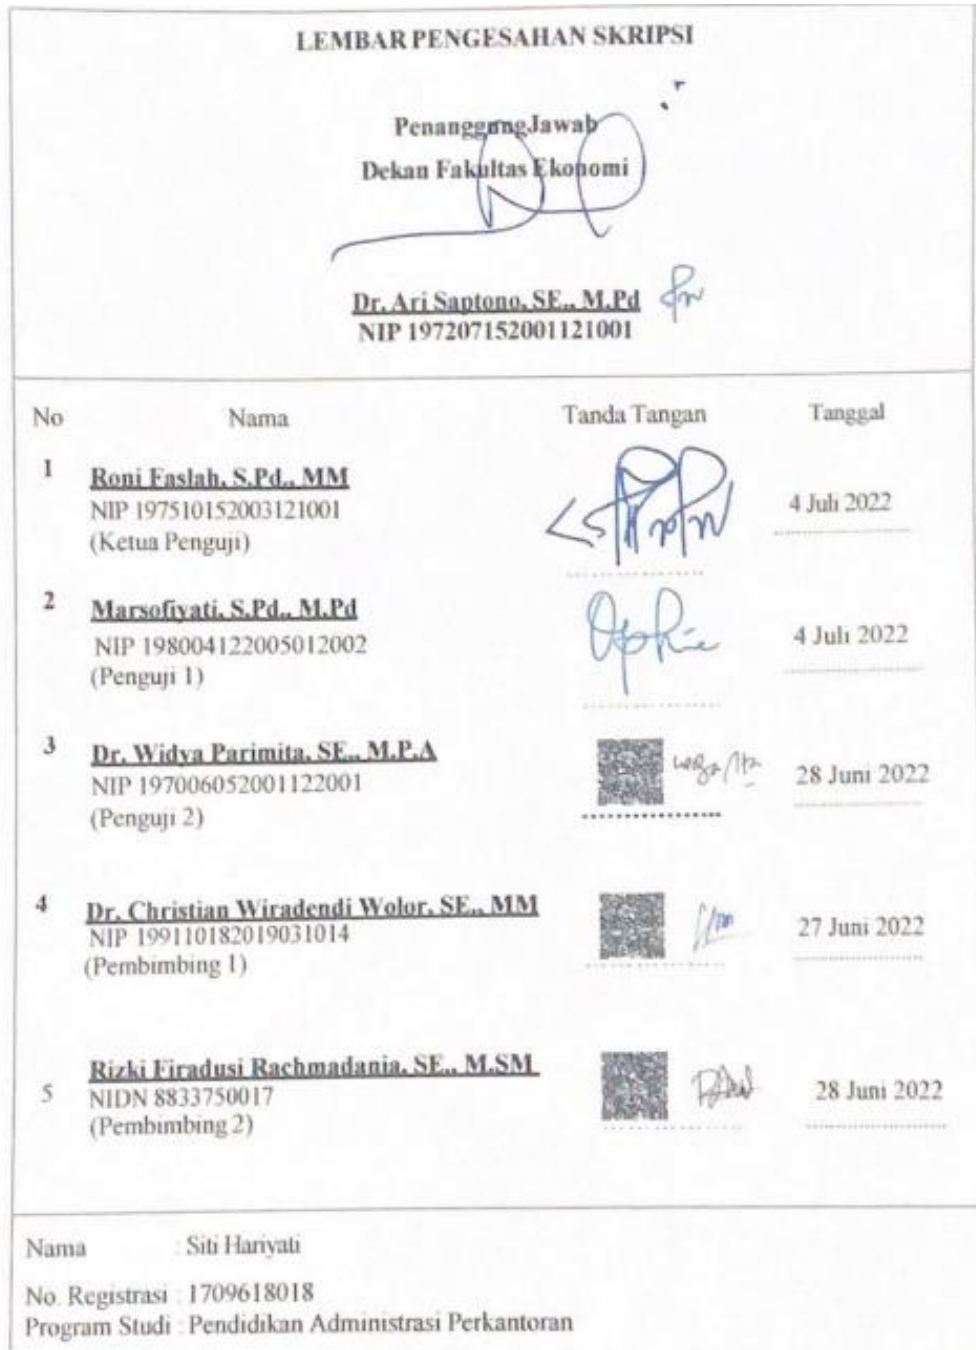 LEMBAR PENGESAHAN SKRIPSI
Penanggung Jawab
Dekan Fakultas Ekonomi
Dr. Ari Saptono, SE., M.Pd
NIP 197207152001121001
No Nama Tanda Tangan Tanggal
1 Roni Faslah, S.Pd., MM
NIP 197510152003121001 4 Juli 2022
(Ketua Penguji)
2 Marsofiyati, S.Pd., M.Pd
NIP 198004122005012002 4 Juli 2022
(Penguji 1)
3 Dr. Widya Parimita, SE., M.P.A
NIP 197006052001122001 28 Juni 2022
(Penguji 2)
4 Dr. Christian Wiradendi Wolor, SE., MM
NIP 199110182019031014 27 Juni 2022
(Pembimbing 1)
Rizki Firadusi Rachmadania, SE., M.SM
5 NIDN 8833750017 28 Juni 2022
(Pembimbing 2)
Nama : Siti Hariyati
No. Registrasi : 1709618018
Program Studi : Pendidikan Administrasi Perkantoran